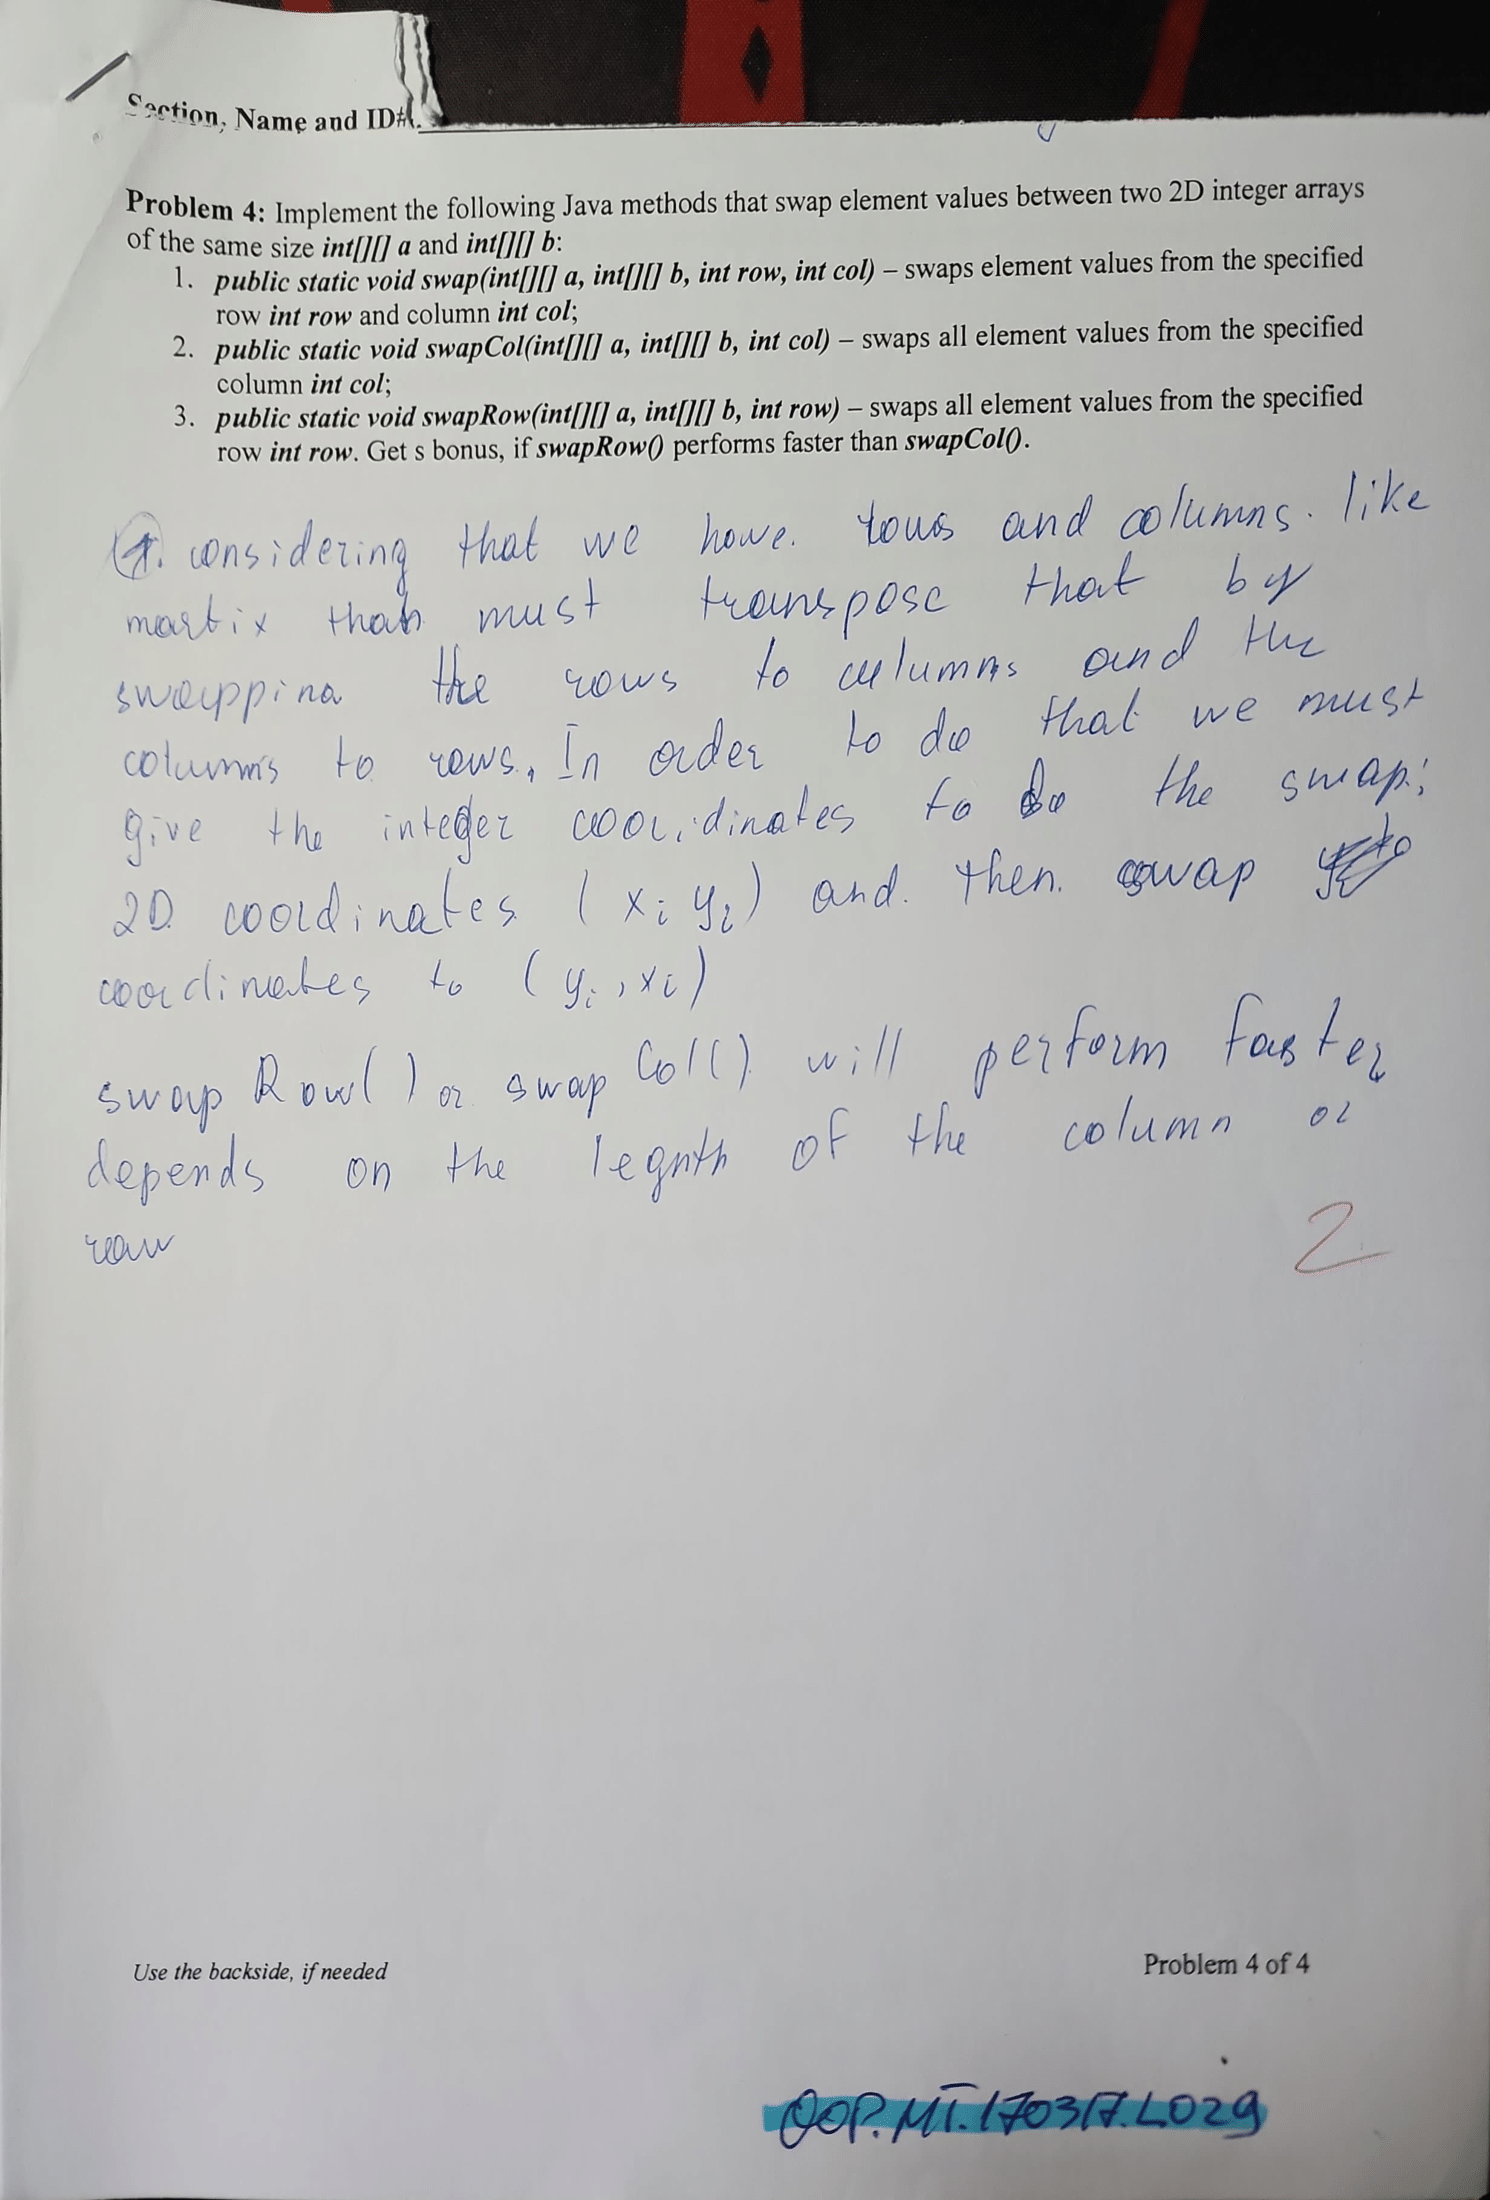 Section, Name and ID#
Problem 4: Implement the following Java methods that swap element values between two 2D integer arrays
of the same size int[][] a and int[][] b:
1. public static void swap(int[][] a, int[][] b, int row, int col) – swaps element values from the specified
row int row and column int col;
2. public static void swapCol(int[][] a, int[][] b, int col) – swaps all element values from the specified
column int col;
3. public static void swapRow(int[][] a, int[][] b, int row) – swaps all element values from the specified
row int row. Get s bonus, if swapRow() performs faster than swapCol().
1. considering that we have. rows and columns. like
must transpose that by
swapping the rows to columns and the
columns to rows. In order to do that we must
give the integer coordinates to do the swap;
2D. coordinates (xi yi) and. then. swap
coordinates to (yi, xi)
swap Row() or swap Col() will perform faster
depends on the legnth of the column or
raw
2
Use the backside, if needed
Problem 4 of 4
OOP.MT.170317.L029